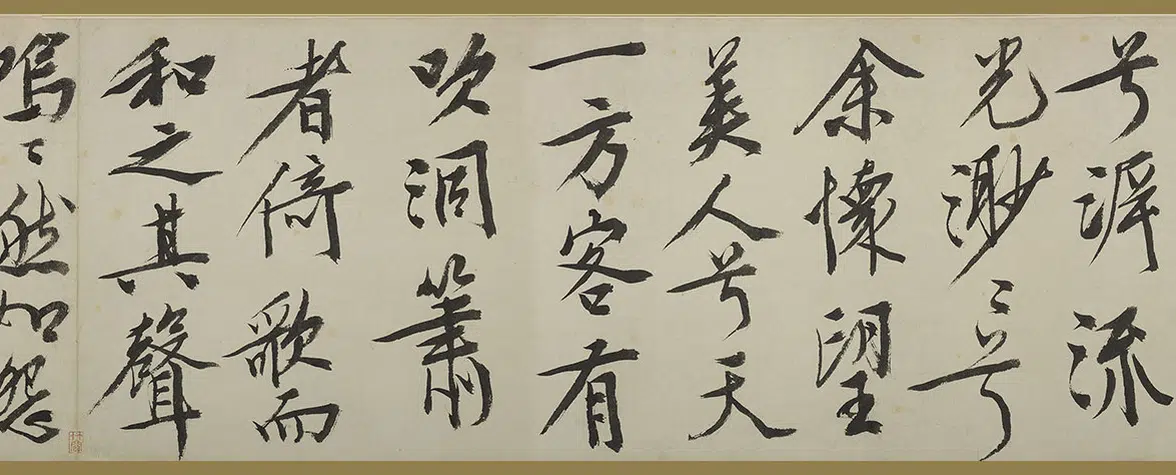 兮泝流
光渺〻兮
余懷望
美人兮天
一方客有
吹洞簫
者倚歌而
和之其聲
嗚〻然如怨